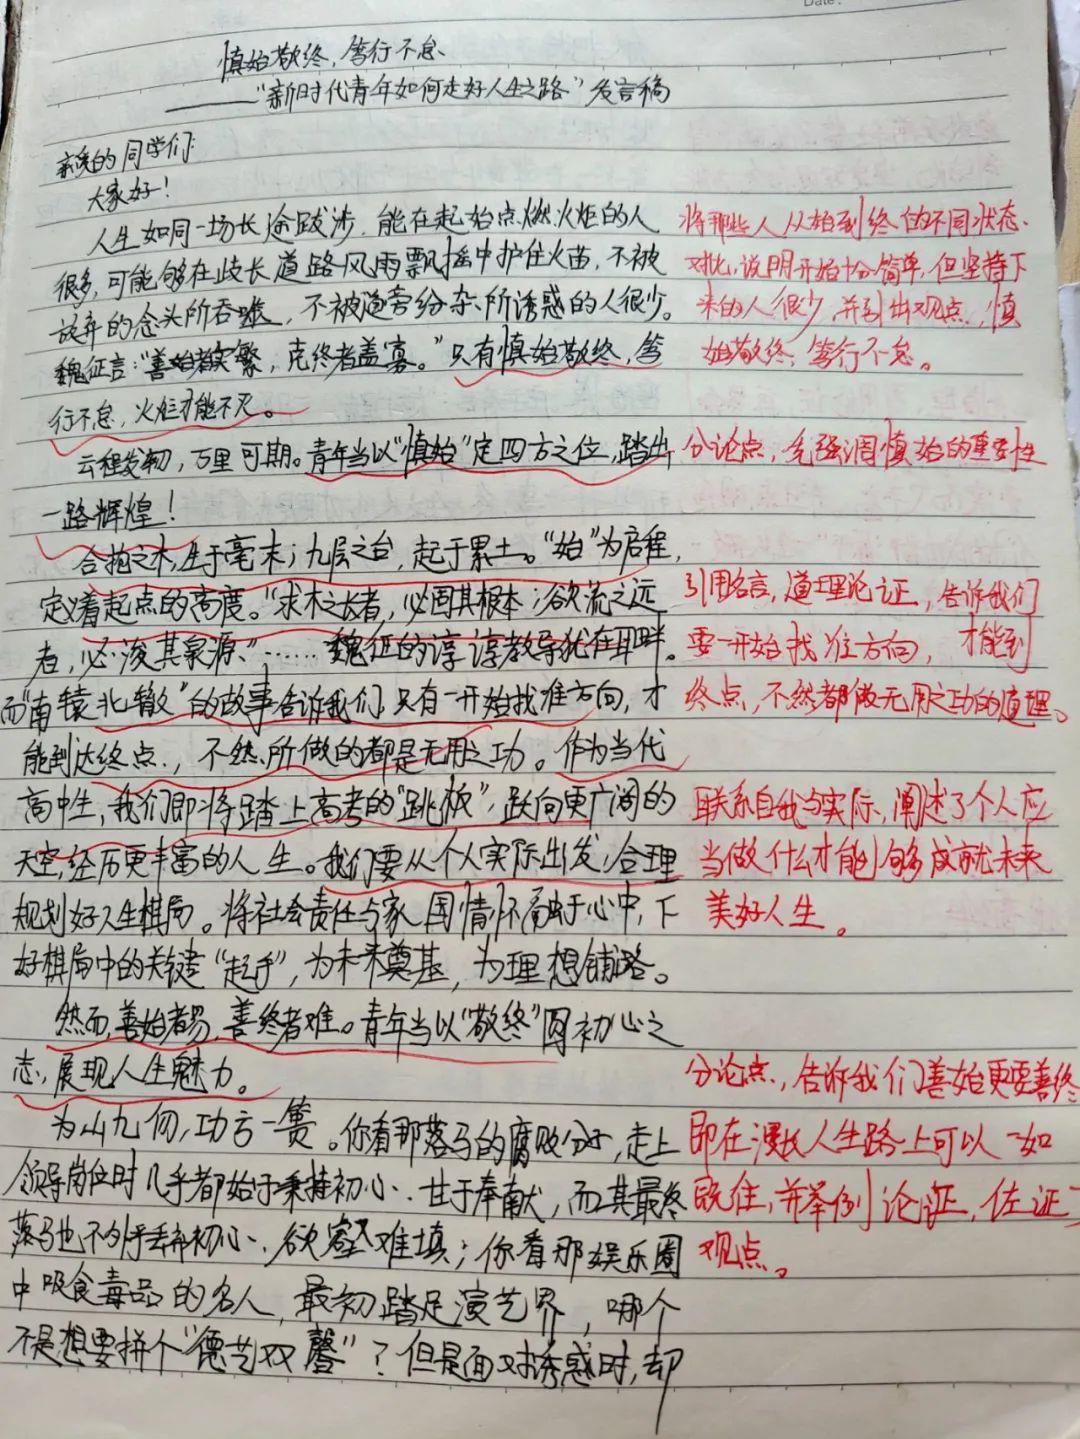 Date:
慎始敬终,笃行不怠
——"新时代青年如何走好人生之路"发言稿
亲爱的同学们:
大家好!
人生如同一场长途跋涉,能在起始点燃火炬的人
很多,可能够在歧长道路风雨飘摇中护住火苗,不被
放弃的念头所吞噬,不被道旁纷杂所诱惑的人很少。
魏征言:"善始者实繁,克终者盖寡。"只有慎始敬终,笃
行不怠,火炬才能不灭。
云程发轫,万里可期。青年当以"慎始"定四方之位,踏出
一路辉煌!
合抱之木,生于毫末;九层之台,起于累土。"始"为启程,
定义着起点的高度。"求木之长者,必固其根本;欲流之远
者,必浚其泉源、"……魏征的谆谆教导犹在耳畔。
而"南辕北辙"的故事告诉我们只有一开始找准方向,才
能到达终点,不然所做的都是无用之功。作为当代
高中生,我们即将踏上高考的"跳板",跃向更广阔的
天空,经历更丰富的人生。我们要从个人实际出发,合理
规划好人生棋局。将社会责任与家国情怀融于心中,下
好棋局中的关键"起手",为未来奠基,为理想铺路。
然而,善始者易,善终者难。青年当以"敬终"圆初心之
志,展现人生魅力。
为山九仞,功亏一篑。你看那落马的腐败分子,走上
领导岗位时几乎都始于秉持初心、甘于奉献,而其最终
落马也不外乎丢弃初心、欲壑难填;你看那娱乐圈
中吸食毒品的名人,最初踏足演艺界,哪个
不是想要拼个"德艺双馨"?但是面对诱惑时,却
将那些人从始到终的不同状态
对比,说明开始十分简单,但坚持下
来的人很少,并引出观点,慎
始敬终,笃行不怠。
分论点,先强调慎始的重要性
引用名言,道理论证,告诉我们
要一开始找准方向,才能到
终点,不然都做无用之功的道理。
联系自我与实际,阐述了个人应
当做什么才能够成就未来
美好人生。
分论点,告诉我们善始更要善终
即在漫长人生路上可以一如
既往,并举例论证,佐证了
观点。